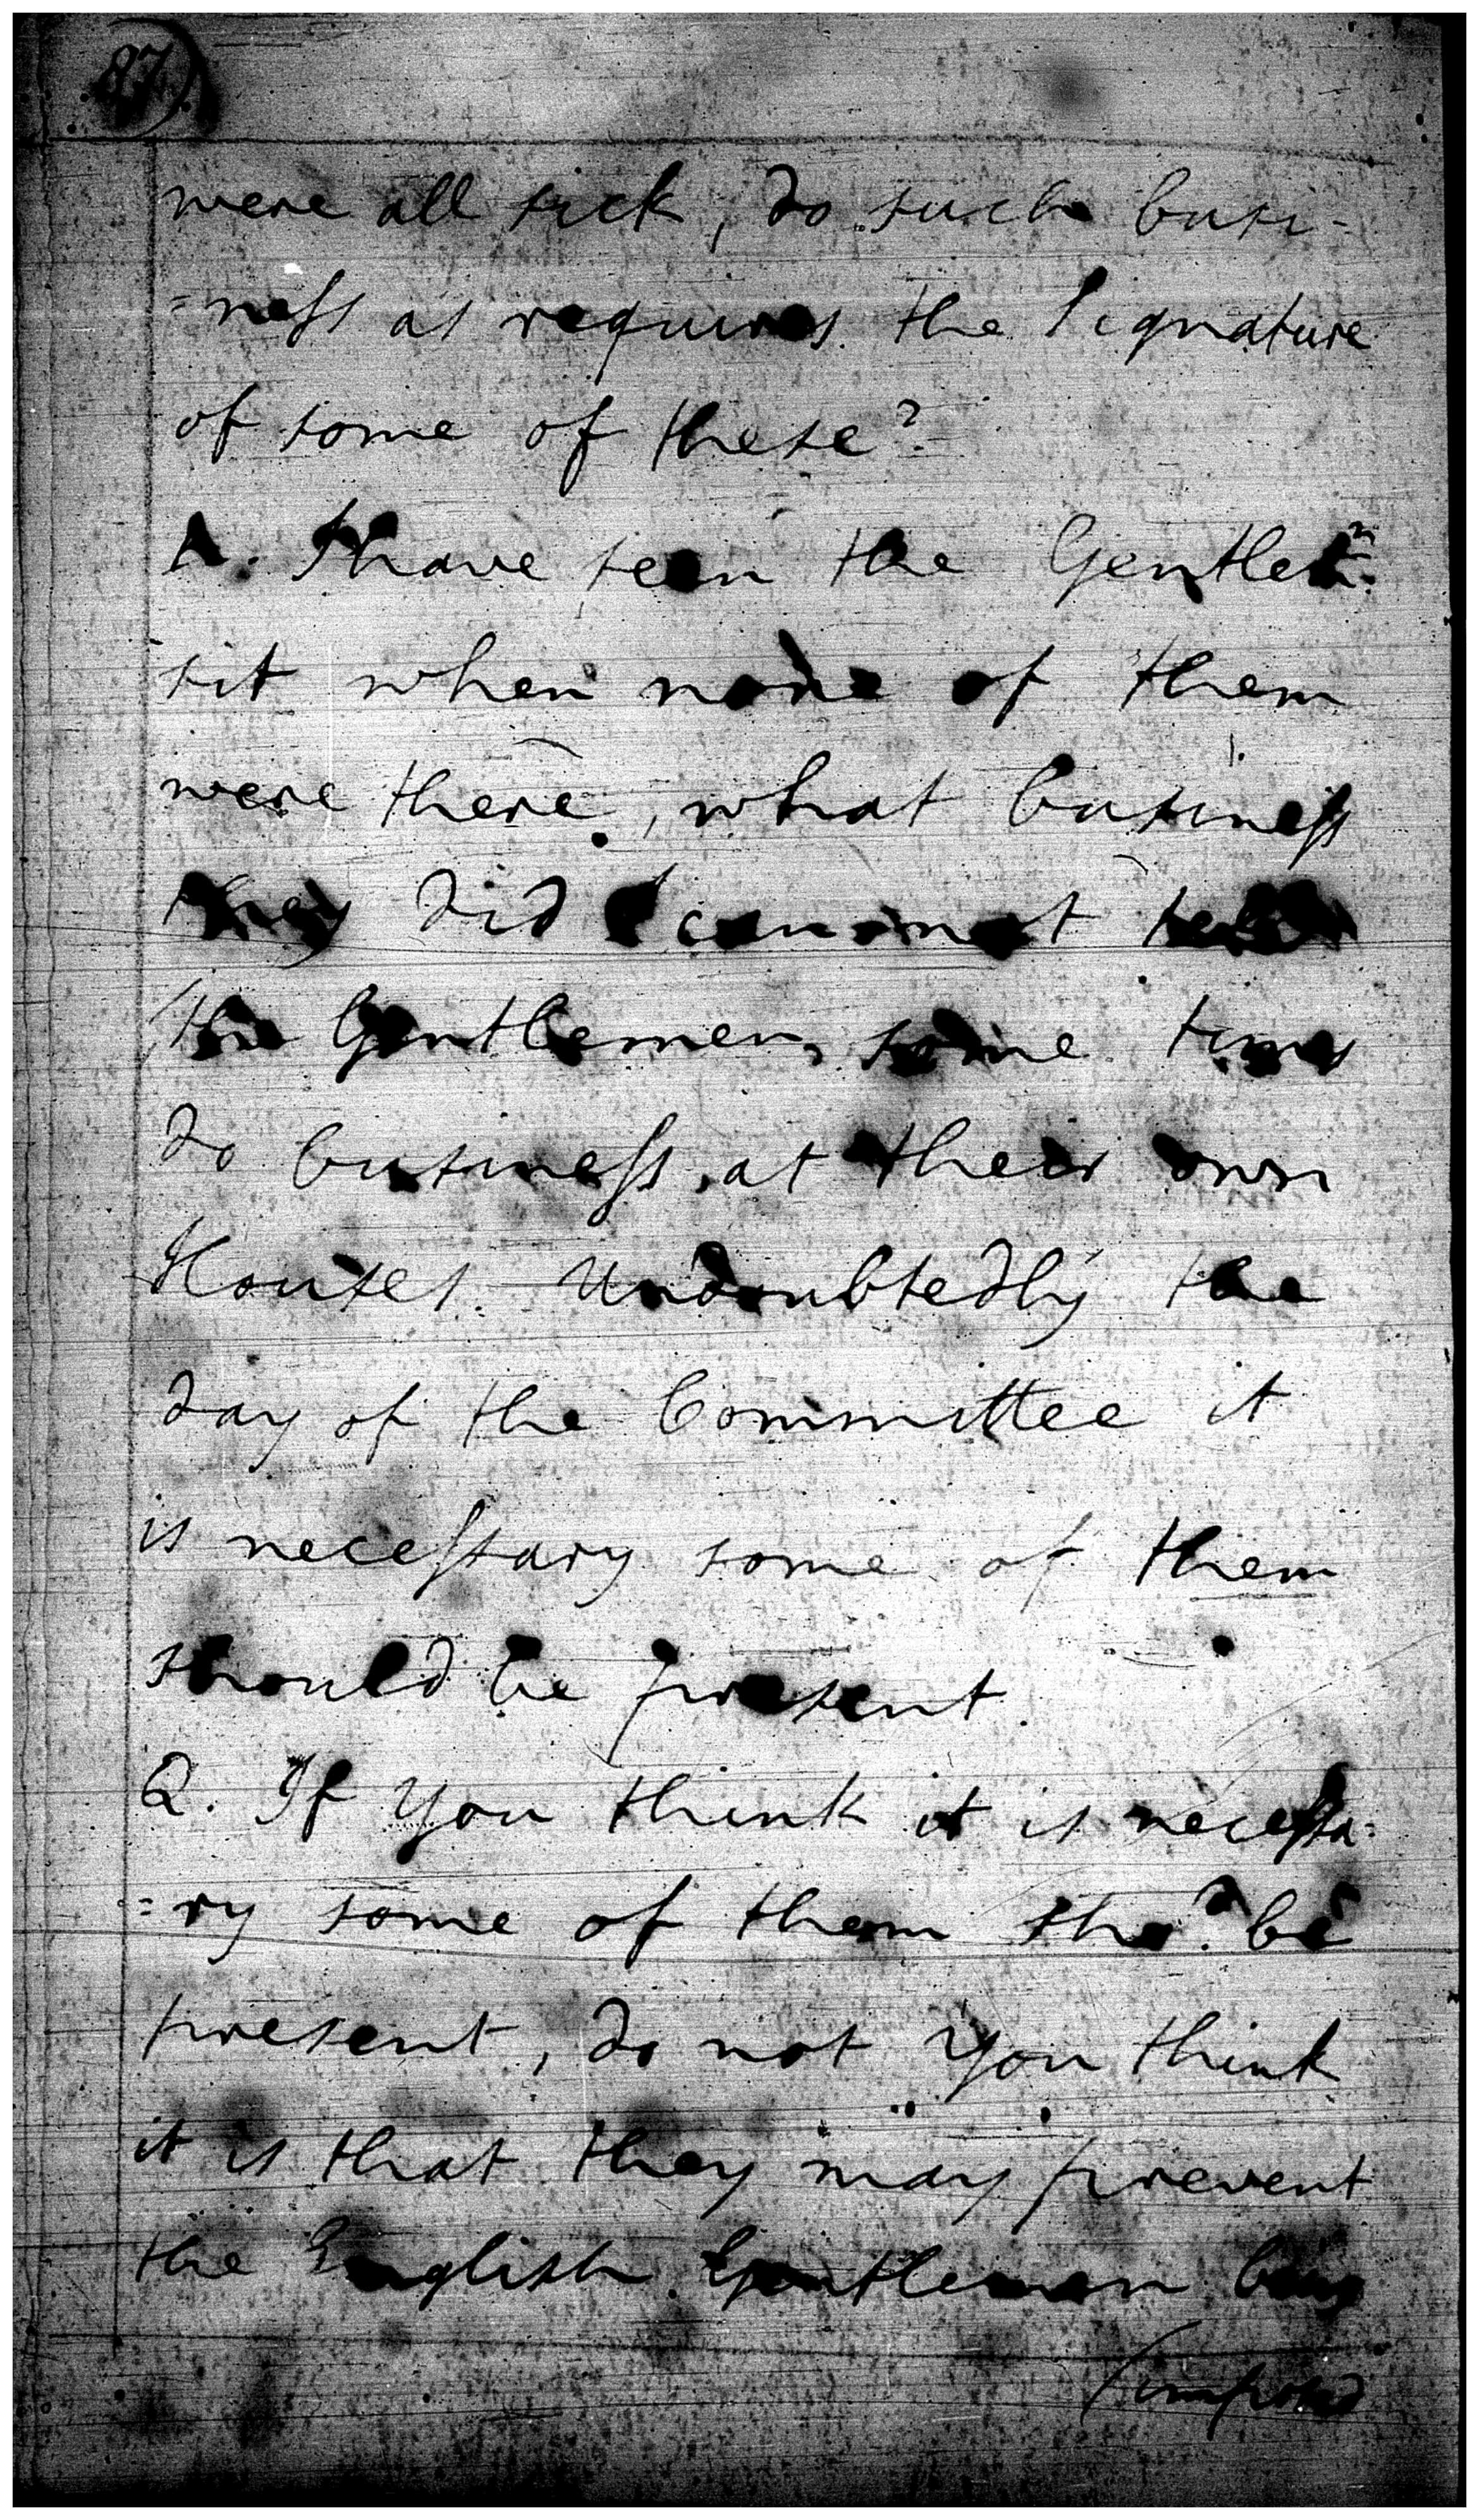 87)
were all sick, do such busi-
=ness as requires the Signature
of some of these?
A. I have seen the Gentle.n
sit when none of them
were there, what business
they did I cannot tell
the Gentlemen some times
do business at their own
Houses. Undoubtedly the
day of the Committee it
is necessary some of them
should be present.
Q. If you think it is necessa-
=ry some of them sho.d be
present, do not you think
it is that they may prevent
the English Gentlemen being
/imposed